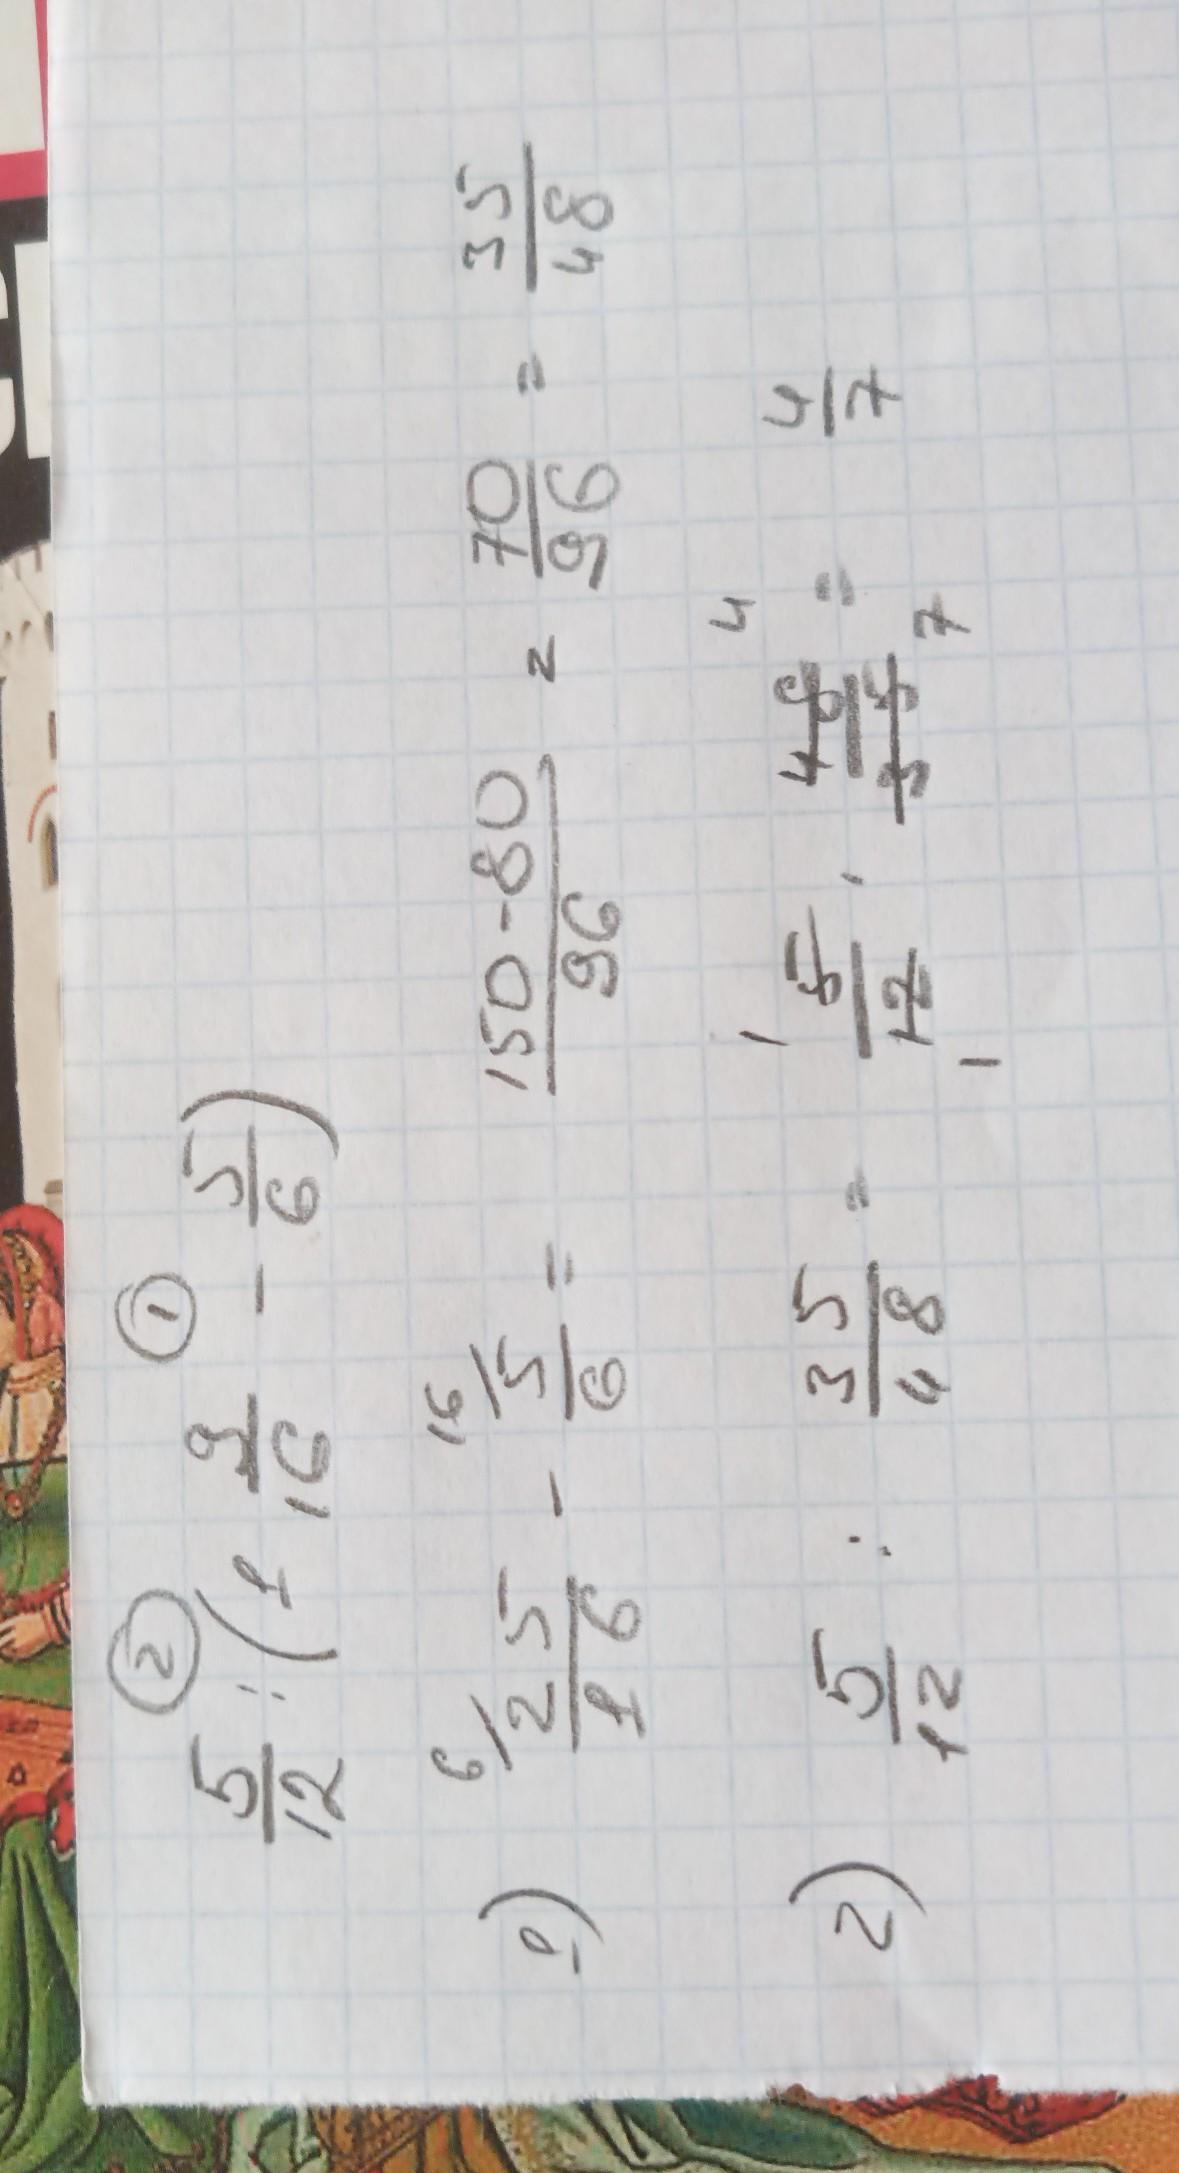 ② ①
5/12 : (1 9/16 - 5/6)
1) 6/ 25/16 - 16/ 5/6 = 150-80/96 = 70/96 = 35/48
2) 5/12 : 35/48 = 1 5/12 1 · 48 4/35 7 = 4/7